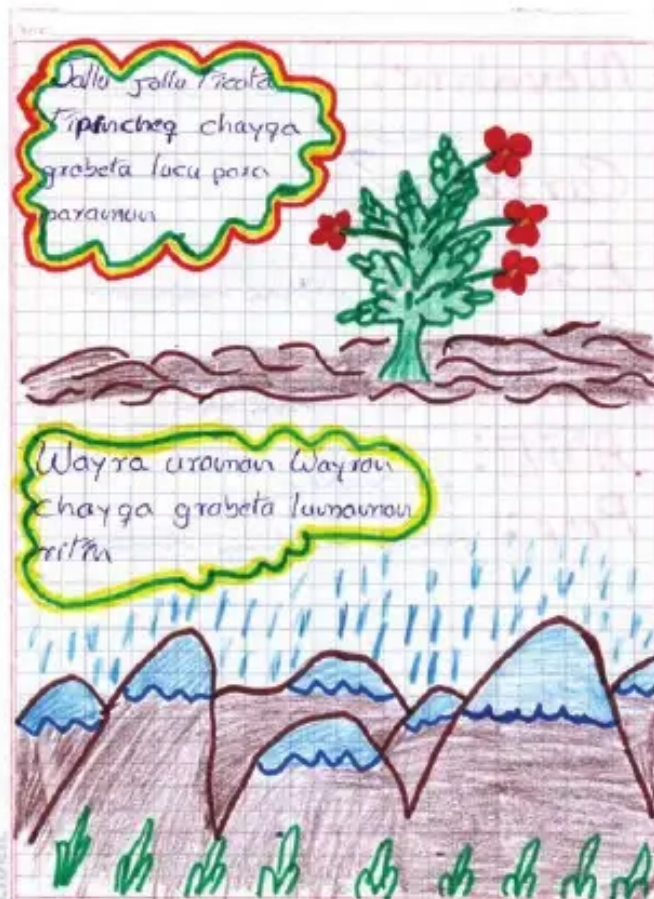 Jallu jallu Ticata
Tipincheq chayqa
grabeta lucu para
paraunun
Wayra uraunan Wayran
chayqa grabeta launaunan
ritin